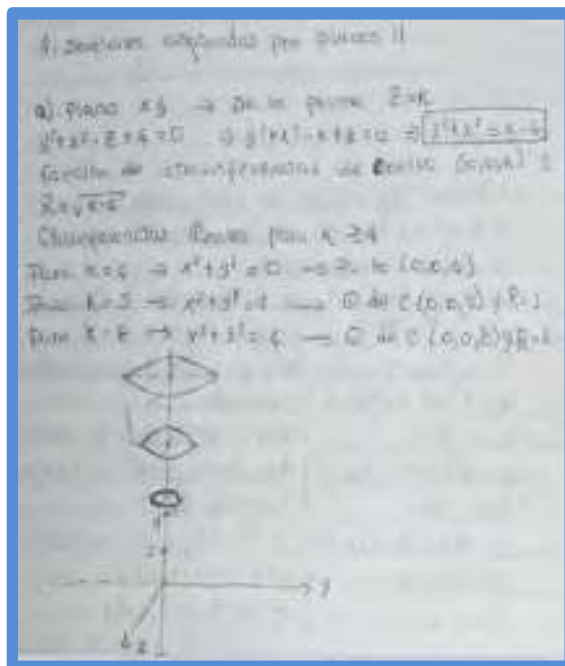 Secciones por planos //
a) Plano xy → De la forma Z=K
y²+x²-z+4=0 ⇒ y²+x²-K+4=0 ⇒ y²+x²=K-4
familia de circunferencias de Centro (0,0,K)
R=√K-4
Circunferencias Reales para K ≥4
Para K=4 → x²+y²=0 → (0,0,4)
Para K=5 → x²+y²=1 → de C(0,0,5) y R=1
Para K=8 → x²+y²=4 → de C(0,0,8) y R=2
y